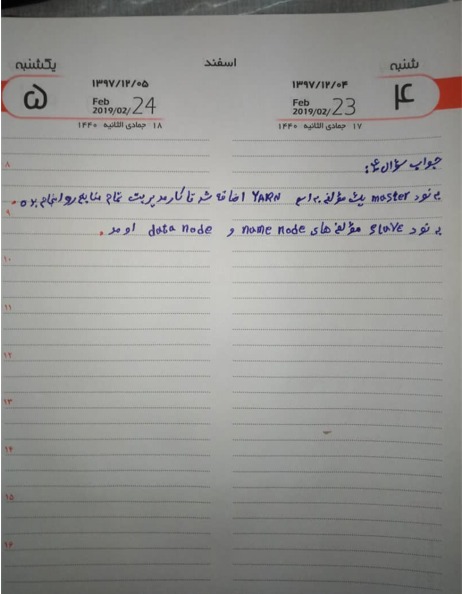 اسفند
شنبه
۴
۱۳۹۷/۱۲/۰۴
Feb
2019/02/23
۱۷ جمادی الثانیه ۱۴۴۰
یکشنبه
۵
۱۳۹۷/۱۲/۰۵
Feb
2019/02/24
۱۸ جمادی الثانیه ۱۴۴۰
جواب سؤال ۴:
به نود master یک مؤلفه به اسم YARN اضافه شد تا کار مدیریت تمام منابع رو انجام بده.
به نود slave مؤلفه های name node و data node اومد.
۸
۹
۱۰
۱۱
۱۲
۱۳
۱۴
۱۵
۱۶